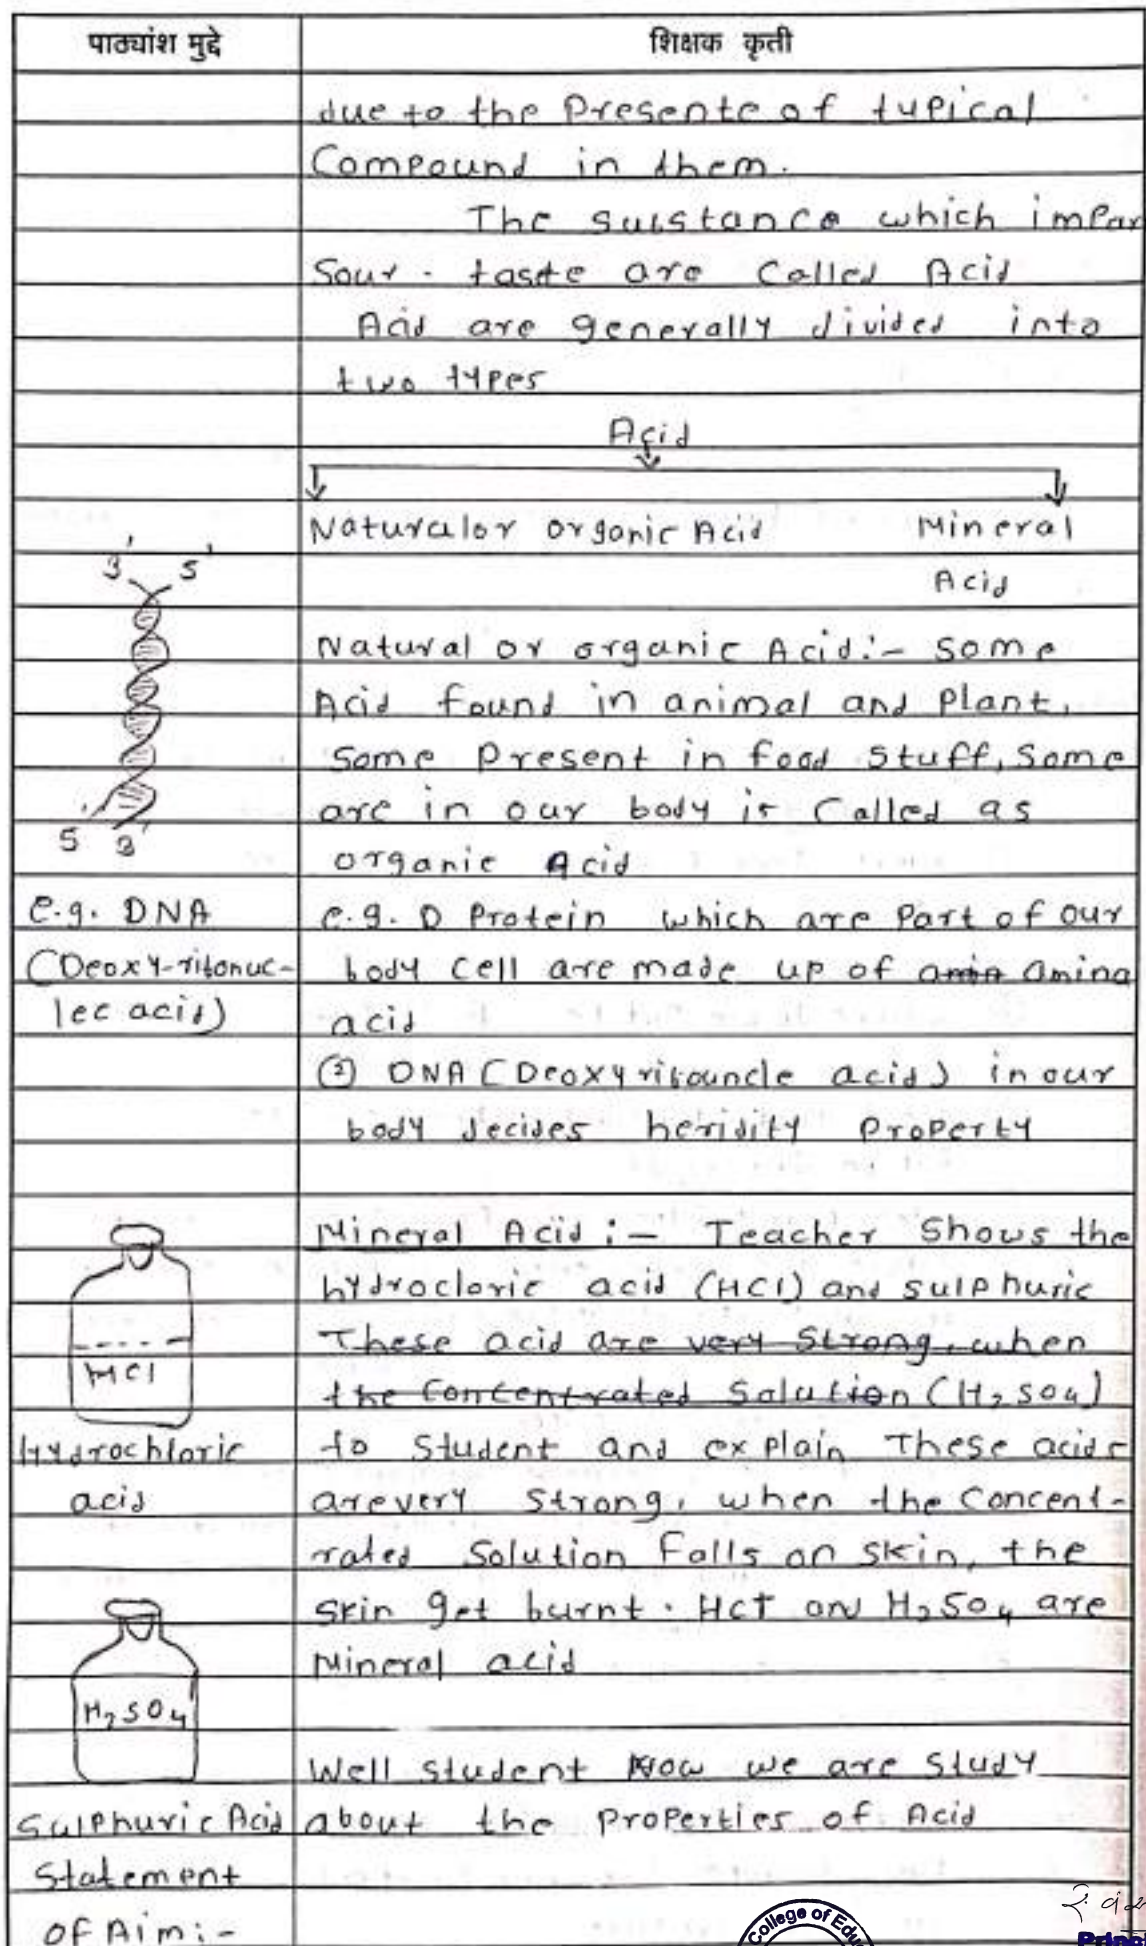 पाठ्यांश मुद्दे
शिक्षक कृती
due to the Presente of typical
Compound in them.
The substance which impar
Sour - taste are Called Acid
Acid are generally divided into
two types
Acid
Naturalor organic Acid Mineral
Acid
3' 5'
5' 3'
Natural or organic Acid:- Some
Acid found in animal and Plant,
Some Present in food Stuff, Some
are in our body is Called as
organic Acid
e.g. DNA
(Deoxy-ribonuc-
lec acid)
e.g. D Protein which are Part of our
body Cell are made up of amin amina
acid
② DNA (Deoxyribouncle acid) in our
body decides heridity Property
HCl
Hydrochloric
acid
Mineral Acid :- Teacher Shows the
hydrocloric acid (HCl) and sulphuric
These acid are very Strong, when
the Concentrated Solution (H₂SO₄)
to Student and explain These acids
arevery Strong, when the Concent-
rated Solution Falls on skin, the
skin get burnt. HCl and H₂SO₄ are
Mineral acid
H₂SO₄
Sulphuric Acid
Well student Now we are study
about the Properties of Acid
Statement
Of Aim:-
College of Edu
Princ